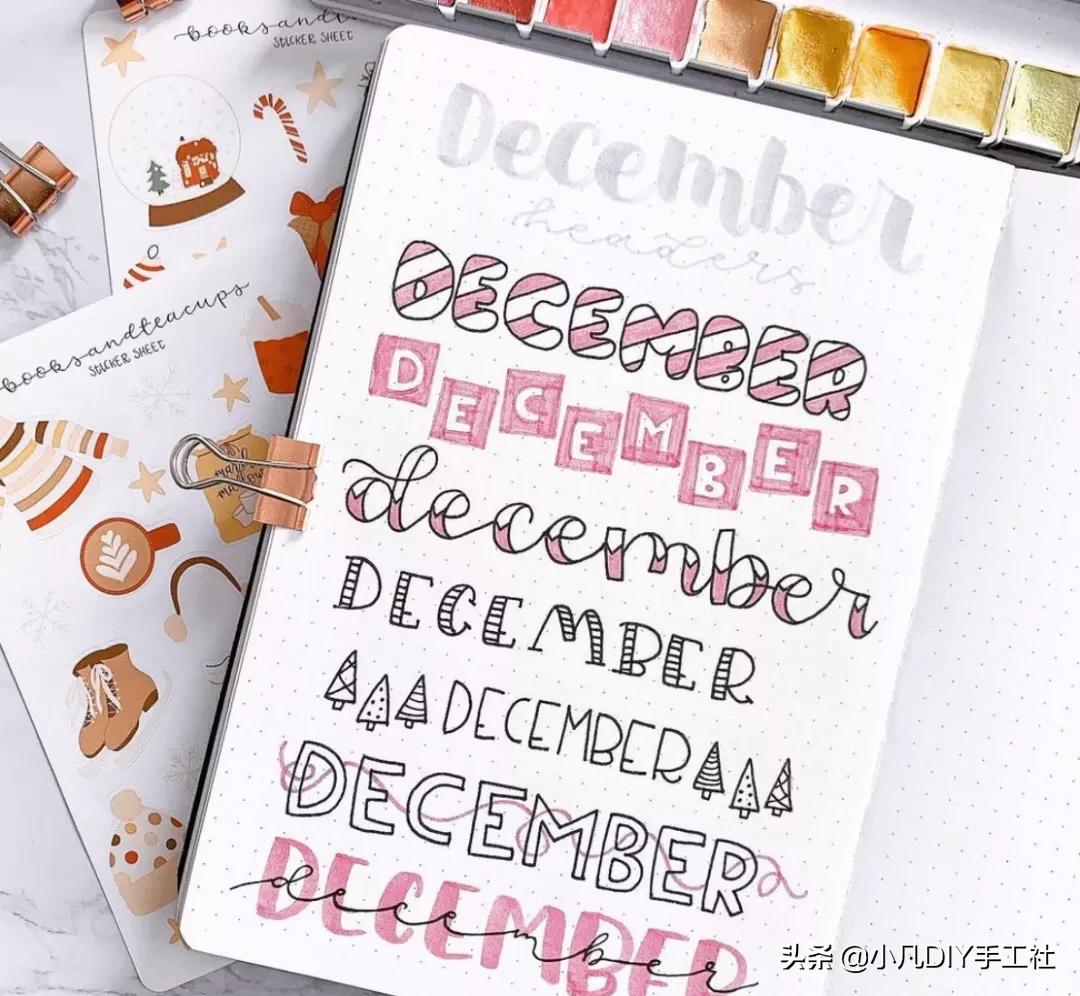 booksandt
STICKER SHEET
booksandteacups
STICKER SHEET
December
headers
DECEMBER
DECEMBER
december
DECEMBER
DECEMBER
DECEMBER
DECEMBER
december
头条 @小凡DIY手工社